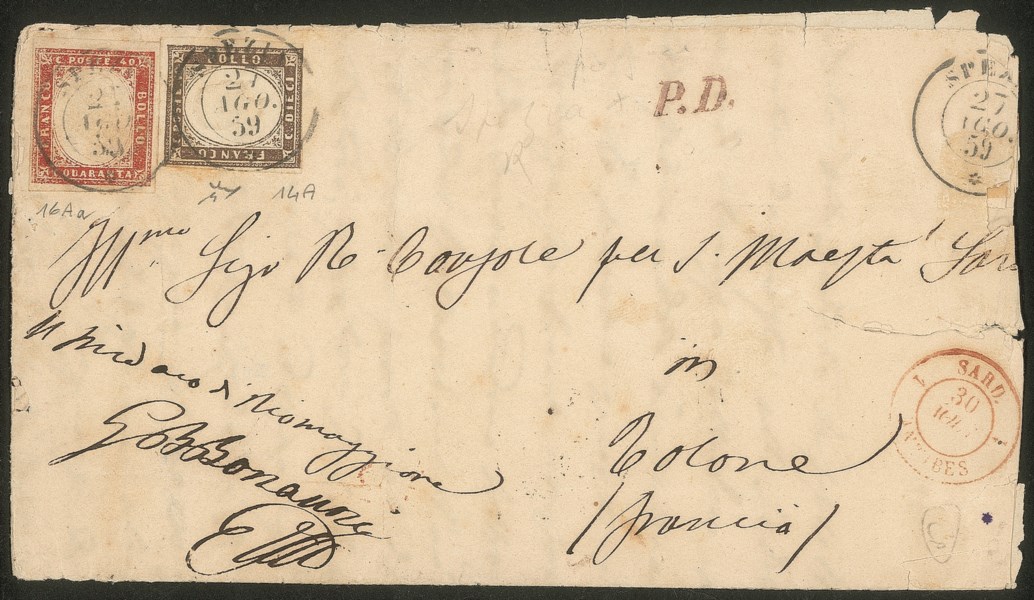 C. POSTE 40
FRANCO
BOLLO
QUARANTA
27
AGO.
59
BOLLO
C. POSTE
C. DIECI
FRANCO
27
AGO.
59
P.D.
SPEZ
27
AGO.
59
16Aa
14A
Ill.mo Sigr R. Console per S. Maestà Sar
in
Tolone
(Francia)
Il Sindaco di Riomaggiore
G B Bonanni
SARD.
30
AGO
ANTIBES